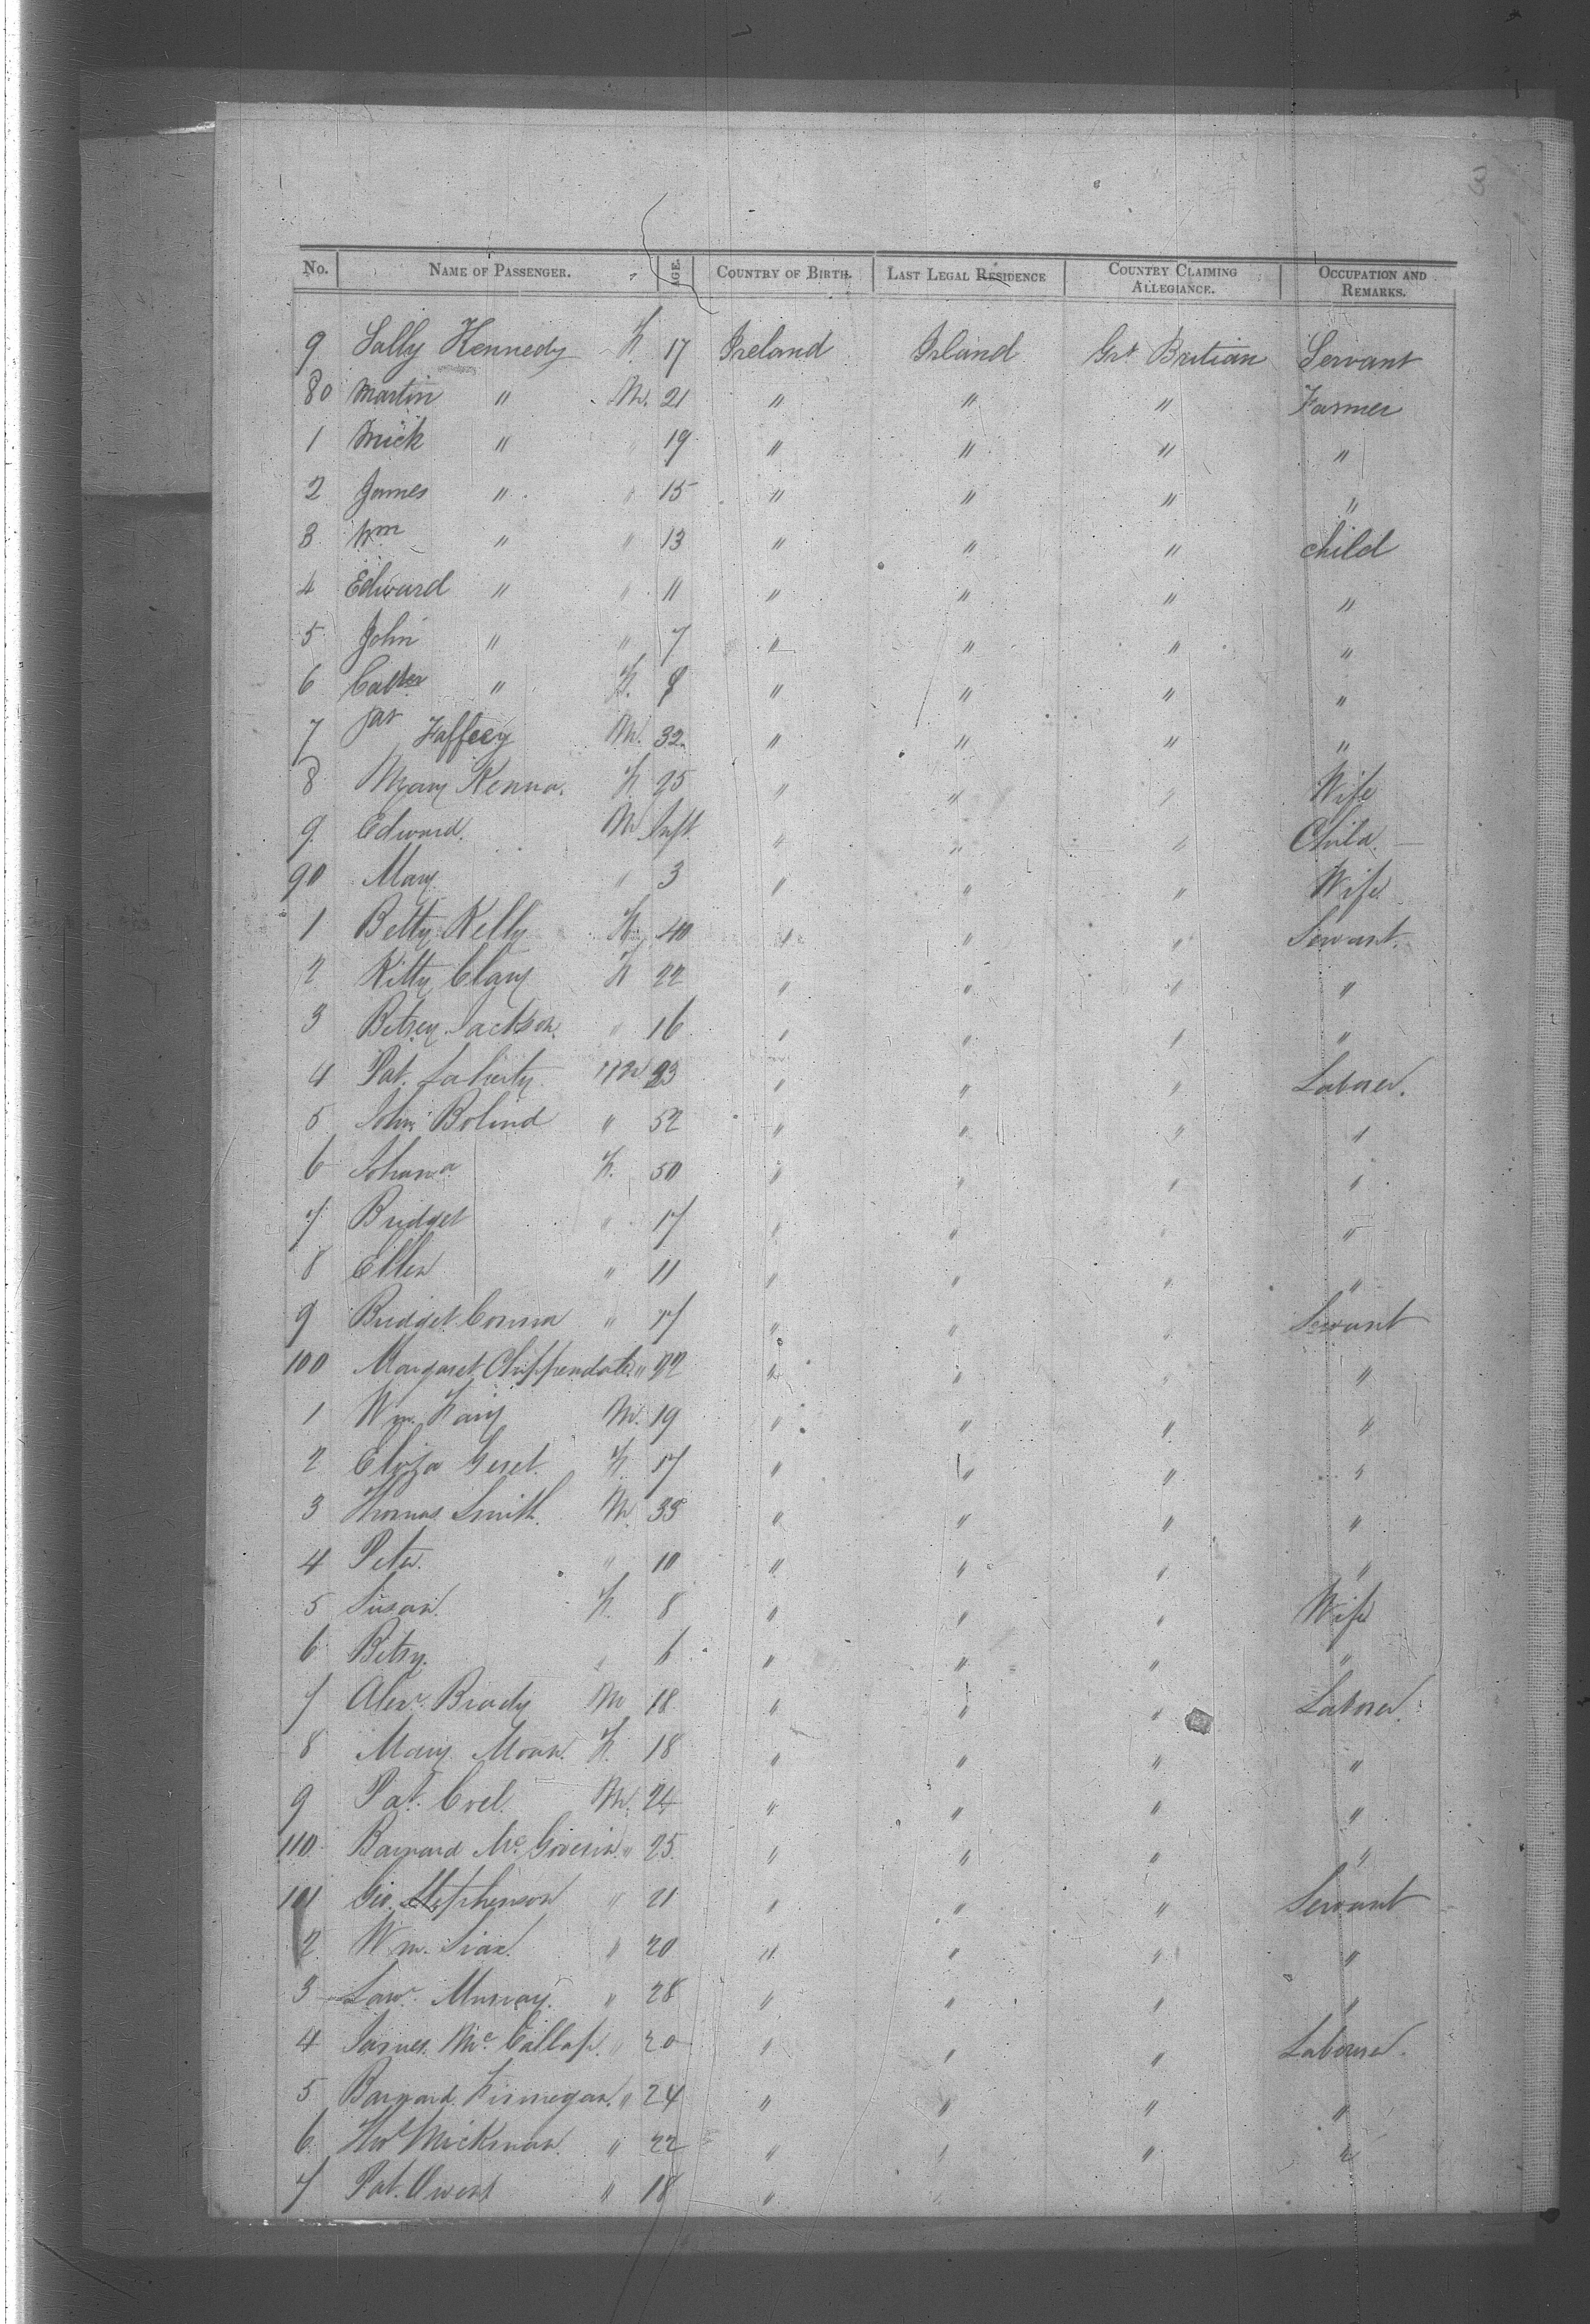 3
No. NAME OF PASSENGER. AGE. COUNTRY OF BIRTH. LAST LEGAL RESIDENCE COUNTRY CLAIMING ALLEGIANCE. OCCUPATION AND REMARKS.
9 Sally Kennedy F. 17 Ireland Irland Grt Britian Servant
80 Martin " M. 21 " " " Farmer
1 Mick " " 19 " " " "
2 James " " 15 " " " "
3 Wm " " 13 " " " child
4 Edward " " 11 " " " "
5 John " " 7 " " " "
6 " F. " " " "
7 Jas Faffeey M. 32 " " " "
8 Mary Kenna. F. 25 " " " Wife
9 Edward. M Inft " " " Child.
90 Mary " 3 " " " Wife
1 Betty Kelly F. 40 " " " Servant.
2 Kitty Clary F 22 " " " "
3 Betsey Jackson " 16 " " " "
4 Pat. Laherty M 23 " " " Laborer.
5 John Bolind " 52 " " " "
6 Johana F. 50 " " " "
7 Bridget " 17 " " " "
8 Ellen " 11 " " " "
9 Bridget " 17 " " " Servant
100 Margaret Chippendale " 22 " " " "
1 Wm. M. 19 " " " "
2 Eliza F. 17 " " " "
3 Thomas Smith. M. 35 " " " "
4 Peter. " 10 " " " "
5 Susan. F. 8 " " " Wife
6 Betsy. " 6 " " " "
7 Alexr. Brady M 18 " " " Laborer.
8 Mary Moan. F. 18 " " " "
9 Pat. M. 24 " " " "
110 Barnard Mc. Govern " 25 " " " "
101 Geo. Stephenson " 21 " " " Servant
2 Wm. " 20 " " " "
3 Law. Murray. " 28 " " " "
4 James Mc. " 20 " " " Laborer.
5 Barnard Finnegan. " 24 " " " "
6 " 22 " " " "
7 Pat. Owens " 18 " "